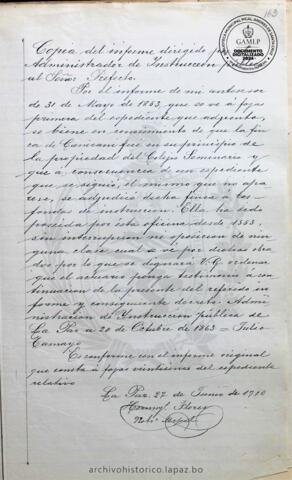 163
GAMLP
DOCUMENTO
DIGITALIZADO
2024
Copia del informe dirigido
Administrador de Instruccion
al Señor Prefecto.
Por el informe de mi antecesor
de 31 de Mayo de 1853, que se vé a fojas
primera del espediente que adjunto,
se viene en conocimiento de que la fin
ca de fué en su principio de
la propiedad del Colejio Seminario y
que a consecuencia de un espediente
que se siguió, el mismo que no apa
rece, se adjudicó dicha finca a los
fondos de instruccion. Ella ha sido
poseida por esta oficina desde 1855,
sin interrupcion ni oposicion de nin
guna clase cual se ve por dichos obra
dos por lo que se dignará V.G. ordenar
que el actuario ponga testimonio á con
tinuacion de la presente del referido in
forme y consiguiente decreto. Admi
nistracion de Instruccion pública de
La Paz a 20 de Octubre de 1863 — Julio
Tamayo.
Es conforme con el informe original
que consta á fojas veintiuna del espediente
relativo
La Paz, 27 de Junio de 1910
Flores
archivohistorico.lapaz.bo